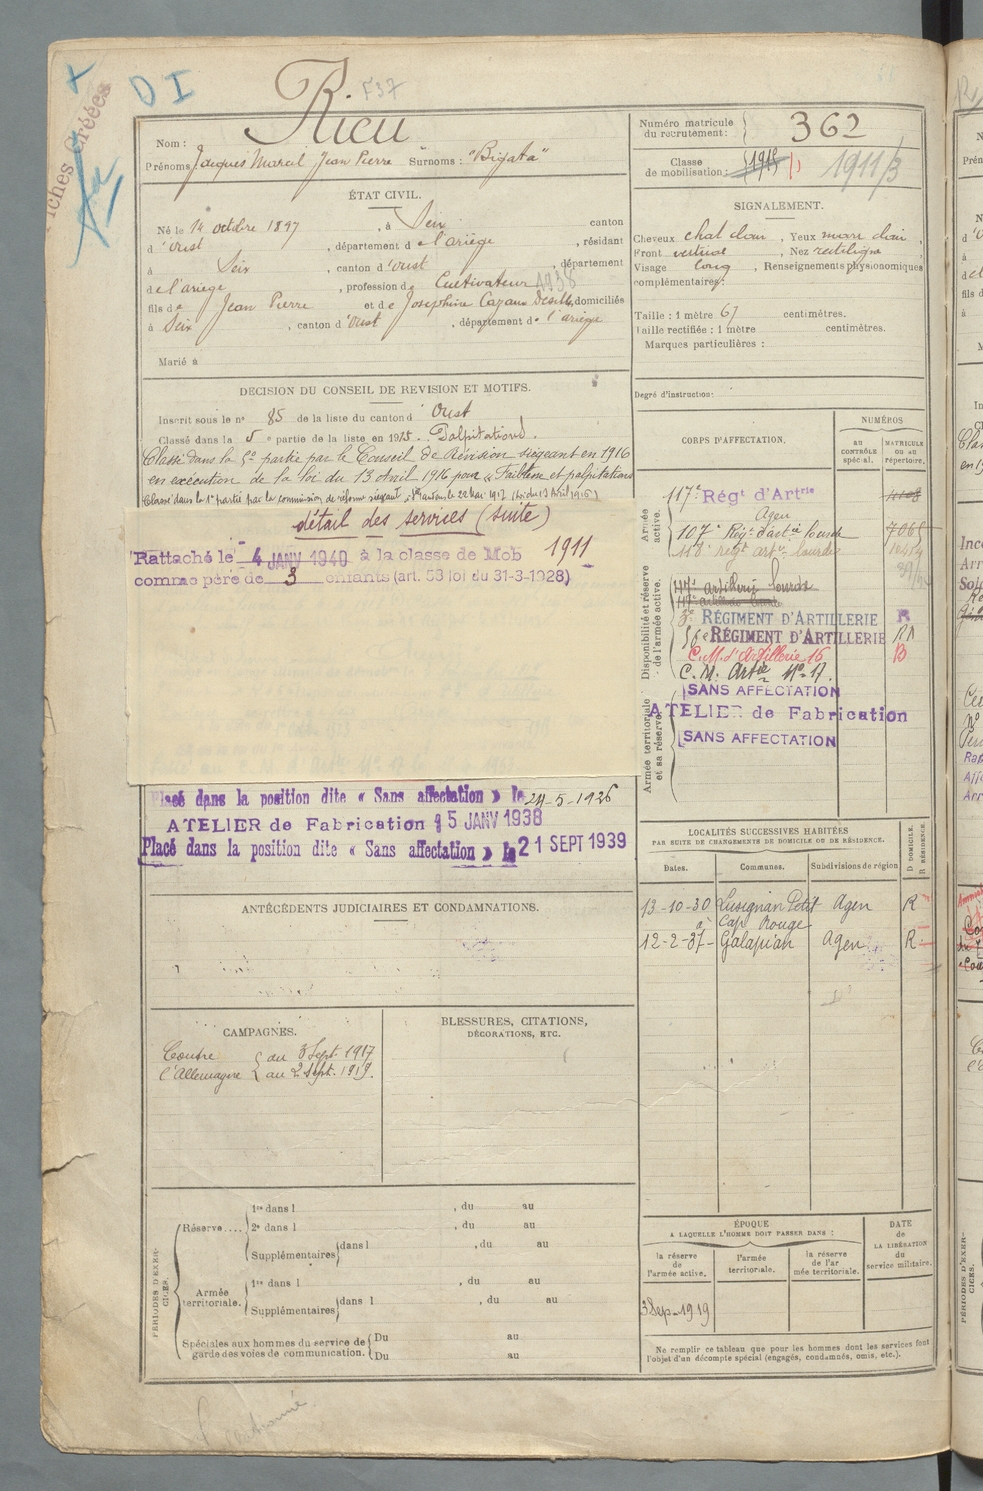 Fiches Créées
D I
R. F37
Nom : Rieu
Prénoms Jacques Marcel Jean Pierre Surnoms : "Bigata"
ÉTAT CIVIL.
Né le 14 octobre 1897, à Seix canton
d'Oust, département de l'ariège, résidant
à Seix, canton d'Oust, département
de l'ariège, profession de Cultivateur 1938
fils de Jean Pierre et de Josephine Cazaux domiciliés
à Seix, canton d'Oust, département de l'ariège
Marié à
DÉCISION DU CONSEIL DE REVISION ET MOTIFS.
Inscrit sous le n° 85 de la liste du canton d' Oust
Classé dans la 5e partie de la liste en 1915. Palpitations.
Classé dans la 5e partie par le Conseil de Révision siégeant en 1916
en exécution de la loi du 13 avril 1916 pour "Faiblesse et palpitations
Classé dans la 1e partie par la commission de réforme siégeant le 22 Mai 1917
détail des services (suite)
Rattaché le 4 JANV 1940 à la classe de Mob 1911
comme père de 3 enfants (art. 58 loi du 31-3-1928)
Placé dans la position dite « Sans affectation » le 24-5-1926
ATELIER de Fabrication 15 JANV 1938
Placé dans la position dite « Sans affectation » le 21 SEPT 1939
ANTÉCÉDENTS JUDICIAIRES ET CONDAMNATIONS.
CAMPAGNES.
Contre { du 3 Sept. 1917
l'Allemagne { au 2 Sept. 1919.
BLESSURES, CITATIONS,
DÉCORATIONS, ETC.
PÉRIODES D'EXERCICES.
Réserve.... 1re dans l , du au
2e dans l , du au
Supplémentaires dans l , du au
Armée territoriale. 1re dans l , du au
Supplémentaires dans l , du au
Spéciales aux hommes du service de garde des voies de communication. Du au
Du au
Numéro matricule du recrutement : 362
Classe de mobilisation : 1918 1911/3
SIGNALEMENT.
Cheveux chat clair, Yeux marr clair,
Front vertical, Nez rectiligne,
Visage long, Renseignements physionomiques
complémentaires :
Taille : 1 mètre 67 centimètres.
Taille rectifiée : 1 mètre centimètres.
Marques particulières :
Degré d'instruction :
CORPS D'AFFECTATION.
NUMÉROS
AU CONTRÔLE spécial.
MATRICULE ou au répertoire.
Armée active.
117e Régt d'Artrie
Agen
107e Régt d'artie lourde
118e régt artie lourde
Disponibilité et réserve de l'armée active.
117e artillerie lourde
117e artillerie lourde
3e RÉGIMENT D'ARTILLERIE R
56e RÉGIMENT D'ARTILLERIE RA
C.M. d'Artillerie 16 B
C. M. Artie No 17.
Armée territoriale et sa réserve.
SANS AFFECTATION
ATELIER de Fabrication
SANS AFFECTATION
LOCALITÉS SUCCESSIVES HABITÉES
PAR SUITE DE CHANGEMENTS DE DOMICILE OU DE RÉSIDENCE.
D DOMICILE. R RÉSIDENCE.
Dates. Communes. Subdivisions de région
13-10-30 Lusignan Petit Agen R
à Cap Rouge
12-2-37- Galapian Agen R
ÉPOQUE
A LAQUELLE L'HOMME DOIT PASSER DANS :
la réserve de l'armée active.
l'armée territoriale.
la réserve de l'armée territoriale.
DATE de LA LIBÉRATION du service militaire.
3 Sep-1919
Ne remplir ce tableau que pour les hommes dont les services font
l'objet d'un décompte spécial (engagés, condamnés, omis, etc.).